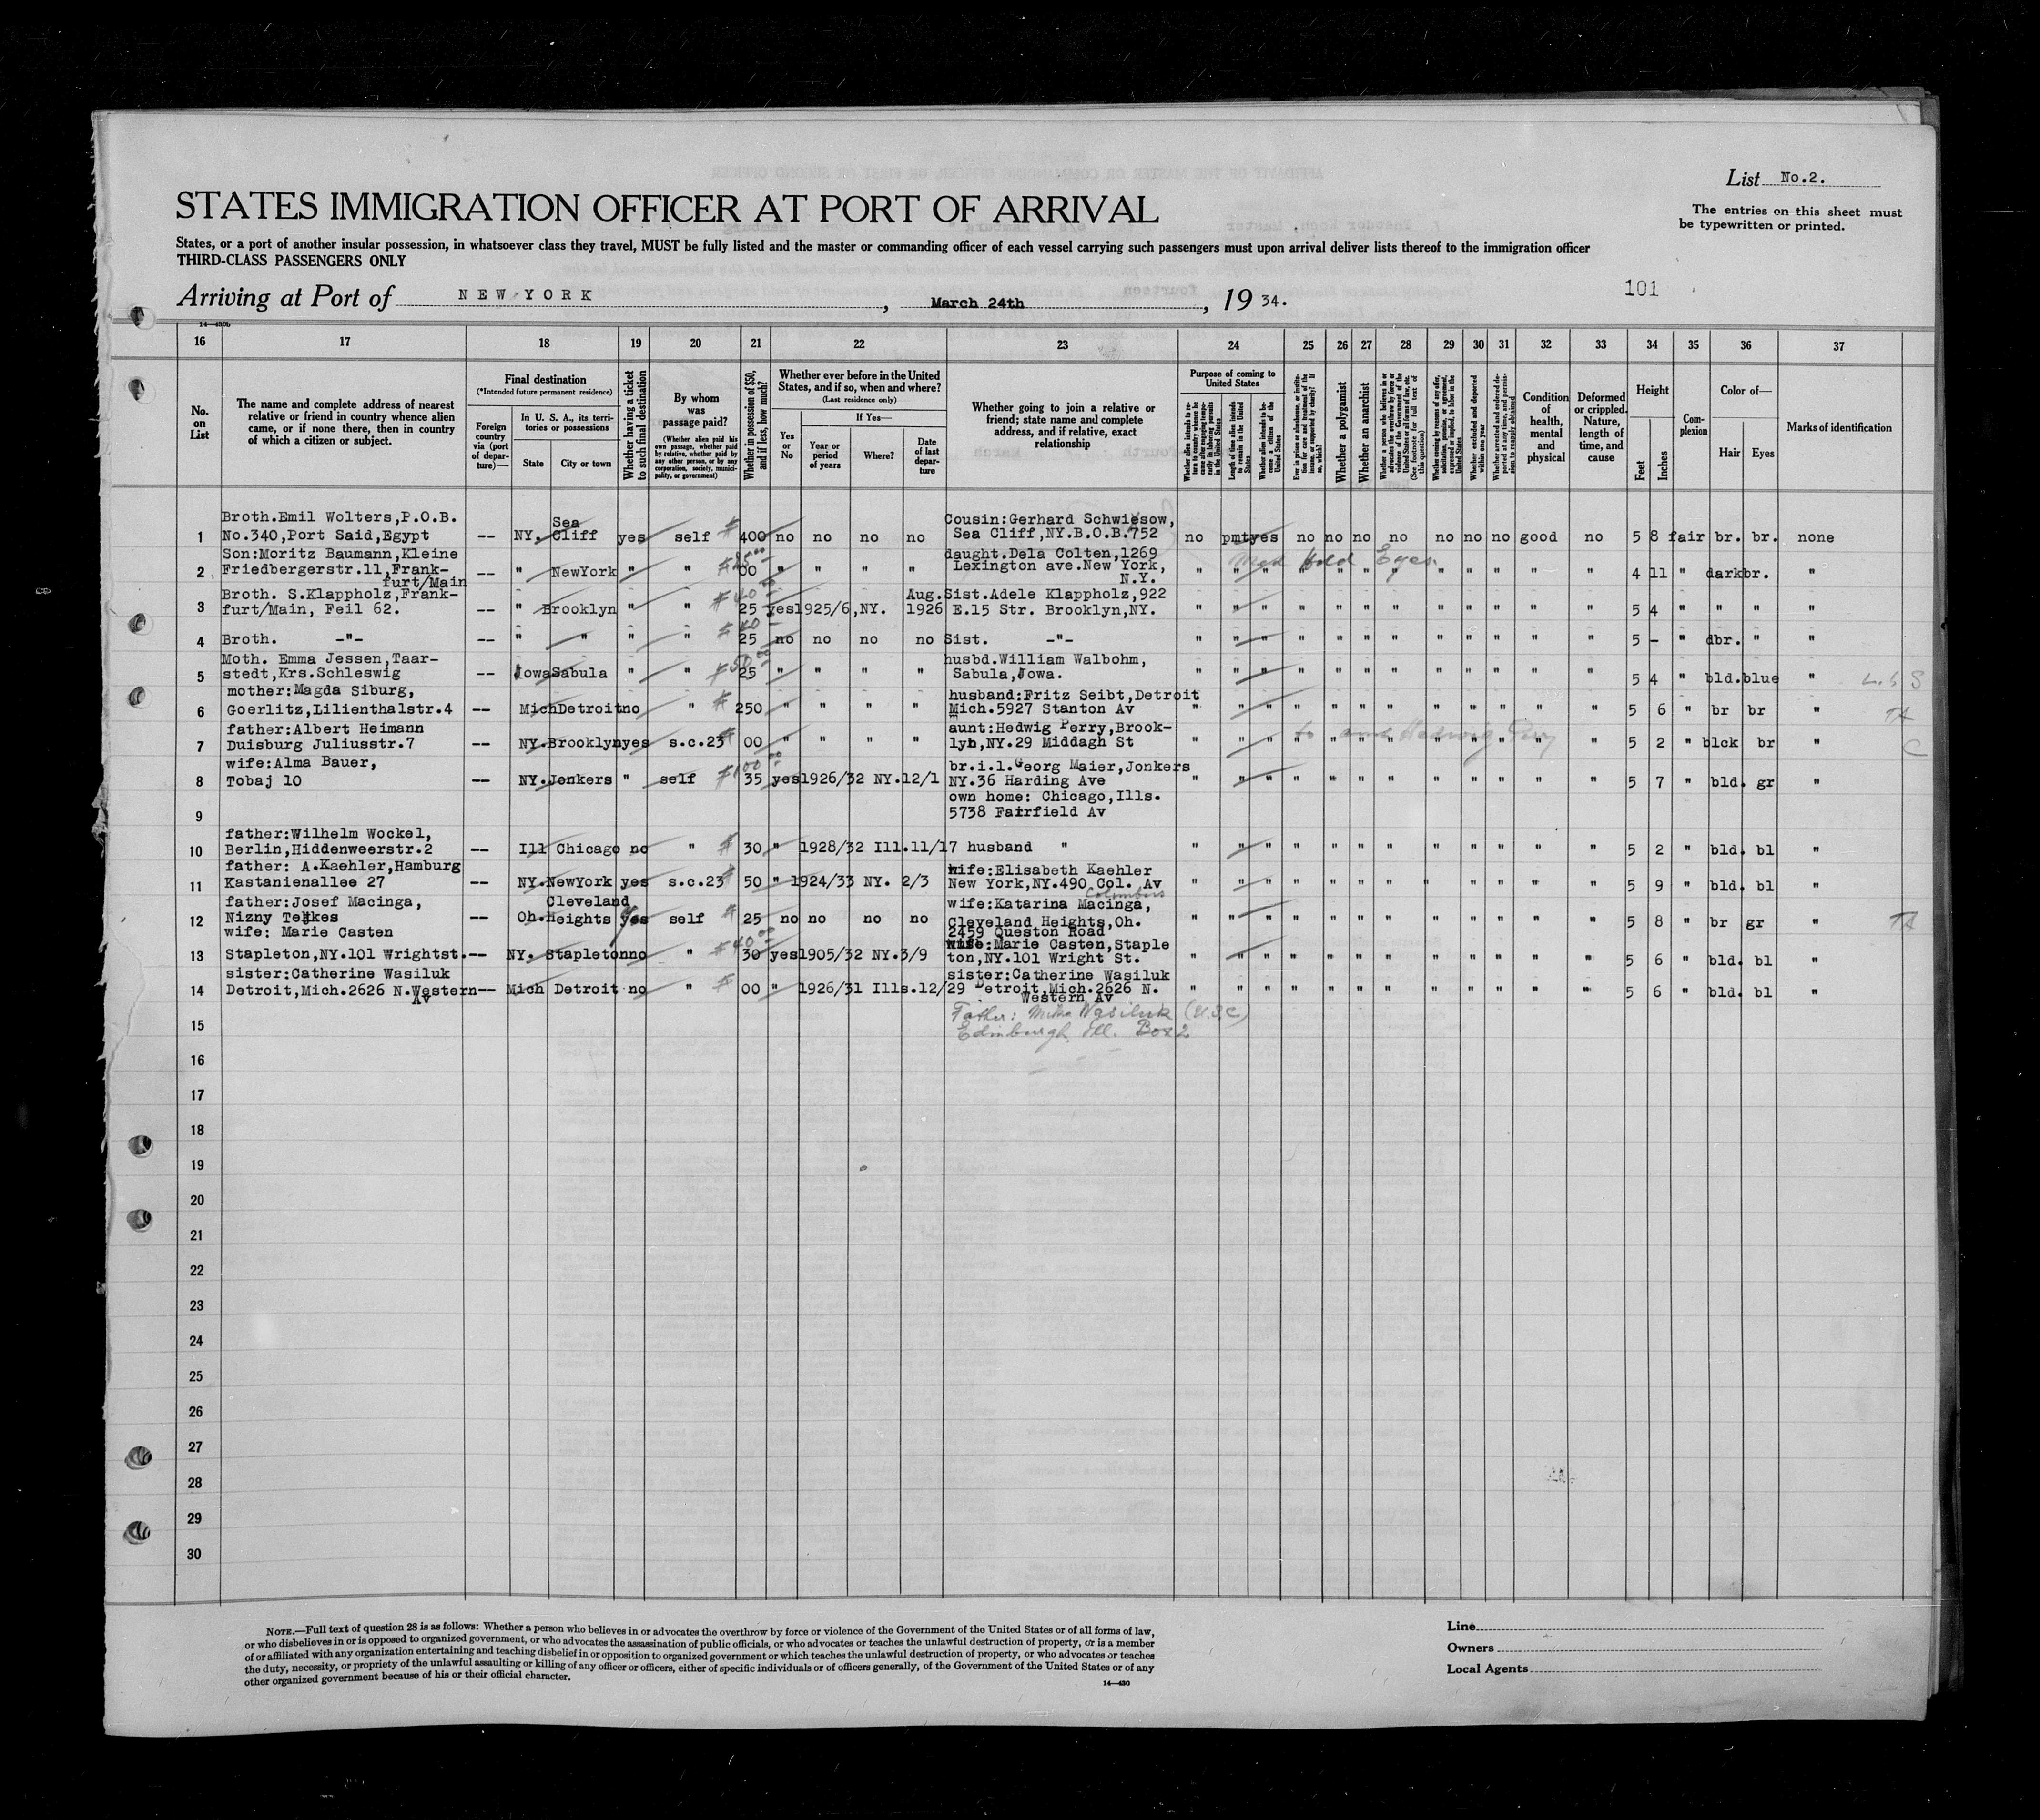 List No.2.
STATES IMMIGRATION OFFICER AT PORT OF ARRIVAL
The entries on this sheet must
be typewritten or printed.
States, or a port of another insular possession, in whatsoever class they travel, MUST be fully listed and the master or commanding officer of each vessel carrying such passengers must upon arrival deliver lists thereof to the immigration officer
THIRD-CLASS PASSENGERS ONLY
Arriving at Port of NEW YORK, March 24th, 1934.
101
14—430b
16 17 18 19 20 21 22 23 24 25 26 27 28 29 30 31 32 33 34 35 36 37
No. on List
The name and complete address of nearest relative or friend in country whence alien came, or if none there, then in country of which a citizen or subject.
Final destination
(*Intended future permanent residence)
Foreign country via (port of departure)—
In U. S. A., its territories or possessions
State
City or town
Whether having a ticket to such final destination
By whom was passage paid?
(Whether alien paid his own passage, whether paid by relative, whether paid by any other person, or by any corporation, society, municipality, or government)
Whether in possession of $50, and if less, how much?
Whether ever before in the United States, and if so, when and where?
(Last residence only)
Yes or No
If Yes—
Year or period of years
Where?
Date of last departure
Whether going to join a relative or friend; state name and complete address, and if relative, exact relationship
Purpose of coming to United States
Length of time alien intends to remain in the United States
Whether alien intends to become a citizen of the United States
Whether a polygamist
Whether an anarchist
Condition of health, mental and physical
Deformed or crippled. Nature, length of time, and cause
Height
Feet
Inches
Complexion
Color of—
Hair
Eyes
Marks of identification
1 Broth.Emil Wolters,P.O.B. No.340,Port Said,Egypt -- NY. Sea Cliff yes self 400 no no no no Cousin:Gerhard Schwiesow, Sea Cliff,NY.B.O.B.752 no pmt yes no no no no no no no good no 5 8 fair br. br. none
2 Son:Moritz Baumann,Kleine Friedbergerstr.11,Frankfurt/Main -- " NewYork " " 00 " " " " daught.Dela Colten,1269 Lexington ave.New York, N.Y. " " " " " " " " " " " " 4 11 " dark br. "
Hold Eyes
3 Broth. S.Klappholz,Frankfurt/Main, Feil 62. -- " Brooklyn " " $40 25 yes 1925/6,NY. Aug. 1926 Sist.Adele Klappholz,922 E.15 Str. Brooklyn,NY. " " " " " " " " " " " " 5 4 " " " "
4 Broth. -"- -- " " " " $40 25 no no no no Sist. -"- " " " " " " " " " " " " 5 - " dbr. " "
5 Moth. Emma Jessen,Taarstedt,Krs.Schleswig -- Jowa Sabula " " $50 25 " " " " husbd.William Walbohm, Sabula,Jowa. " " " " " " " " " " " " 5 4 " bld. blue "
6 mother:Magda Siburg, Goerlitz,Lilienthalstr.4 -- Mich Detroit no " 250 " " " " husband:Fritz Seibt,Detroit Mich.5927 Stanton Av " " " " " " " " " " " " 5 6 " br br "
7 father:Albert Heimann Duisburg Juliusstr.7 -- NY. Brooklyn yes s.c.23 00 " " " " aunt:Hedwig Perry,Brooklyh,NY.29 Middagh St " " " " " " " " " " " " 5 2 " blck br " C
to aunt Hedwig Perry
8 wife:Alma Bauer, Tobaj 10 -- NY. Jonkers " self $100 35 yes 1926/32 NY. 12/1 br.i.l.Georg Maier,Jonkers NY.36 Harding Ave " " " " " " " " " " " " 5 7 " bld. gr "
9 own home: Chicago,Ills. 5738 Fairfield Av
10 father:Wilhelm Wockel, Berlin,Hiddenweerstr.2 -- Ill Chicago no " 30 " 1928/32 Ill. 11/17 husband " " " " " " " " " " " " " 5 2 " bld. bl "
11 father: A.Kaehler,Hamburg Kastanienallee 27 -- NY. NewYork yes s.c.23 50 " 1924/33 NY. 2/3 wife:Elisabeth Kaehler New York,NY.490 Col. Av Columbus " " " " " " " " " " " " 5 9 " bld. bl "
12 father:Josef Macinga, Nizny Tejkes -- Oh. Cleveland Heights yes self 25 no no no no wife:Katarina Macinga, Cleveland Heights,Oh. 2459 Queston Road " " " " " " " " " " " " 5 8 " br gr "
13 wife: Marie Casten Stapleton,NY.101 Wrightst. -- NY. Stapleton no " $40 30 yes 1905/32 NY. 3/9 wife:Marie Casten,Staple ton,NY.101 Wright St. " " " " " " " " " " " " 5 6 " bld. bl "
14 sister:Catherine Wasiluk Detroit,Mich.2626 N.Western Av -- Mich Detroit no " 00 " 1926/31 Ills. 12/29 sister:Catherine Wasiluk Detroit,Mich.2626 N. Western Av " " " " " " " " " " " " 5 6 " bld. bl "
15 Father: Mike Wasiluk (U.S.C)
Edinburgh, Ill. Box 2
16
17
18
19
20
21
22
23
24
25
26
27
28
29
30
NOTE.—Full text of question 28 is as follows: Whether a person who believes in or advocates the overthrow by force or violence of the Government of the United States or of all forms of law,
or who disbelieves in or is opposed to organized government, or who advocates the assassination of public officials, or who advocates or teaches the unlawful destruction of property, or is a member
of or affiliated with any organization entertaining and teaching disbelief in or opposition to organized government or which teaches the unlawful destruction of property, or who advocates or teaches
the duty, necessity, or propriety of the unlawful assaulting or killing of any officer or officers, either of specific individuals or of officers generally, of the Government of the United States or of any
other organized government because of his or their official character.
14—430
Line
Owners
Local Agents